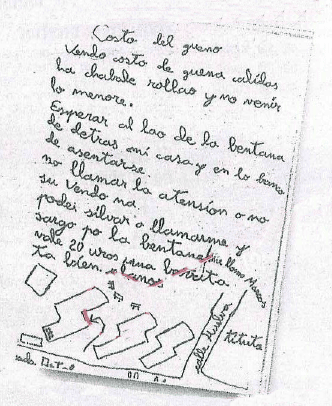 Costo del gueno
Vendo costo de guena calidas
ha chabale rollao y no venir
lo menore.
Esperar al lao de la bentana
de detras mi casa y en lo banco
de asentarse.
no llamar la atension o no
su vendo na.
podei silvar o llamarme y
sargo po la bentana me llamo Marcos
vale 20 uros una
ta bien.
calle Huelva
titulta